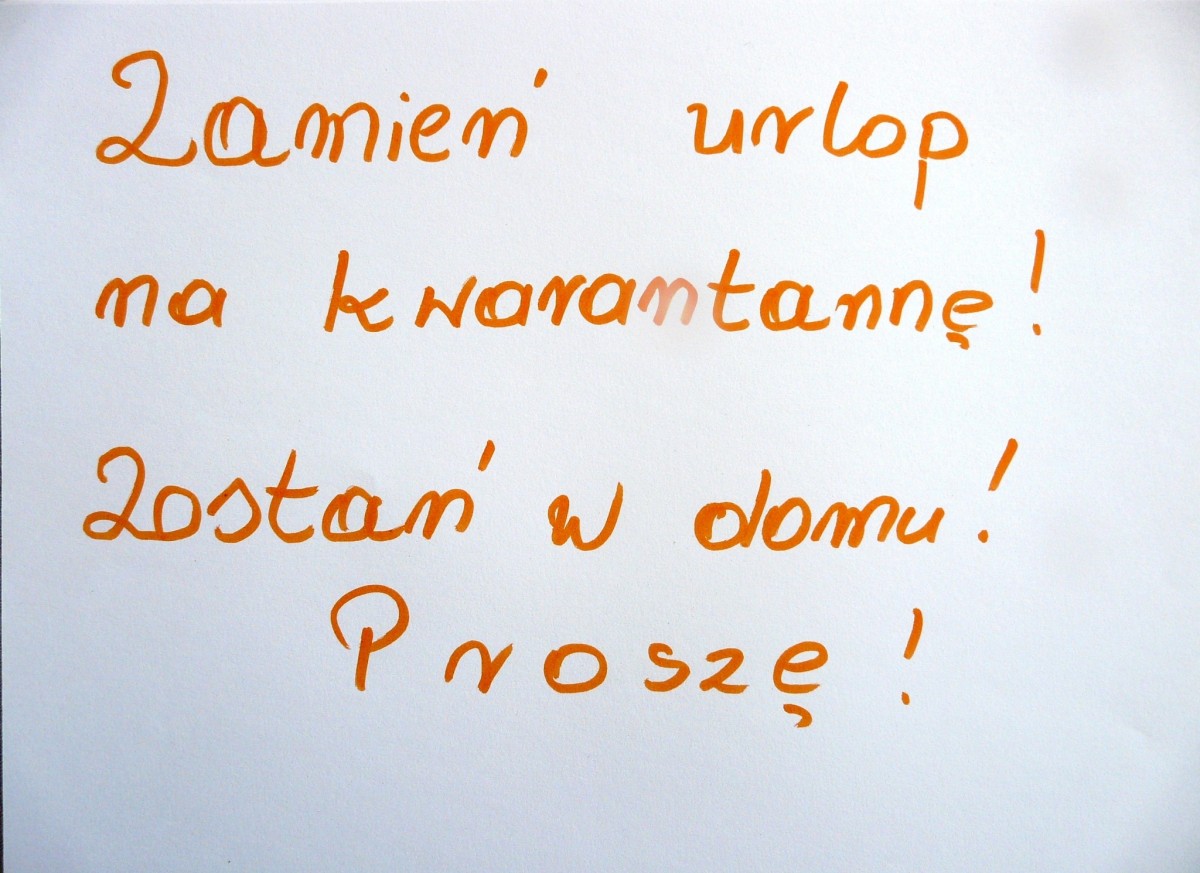 Zamień urlop
na kwarantannę!
Zostań w domu!
Proszę!